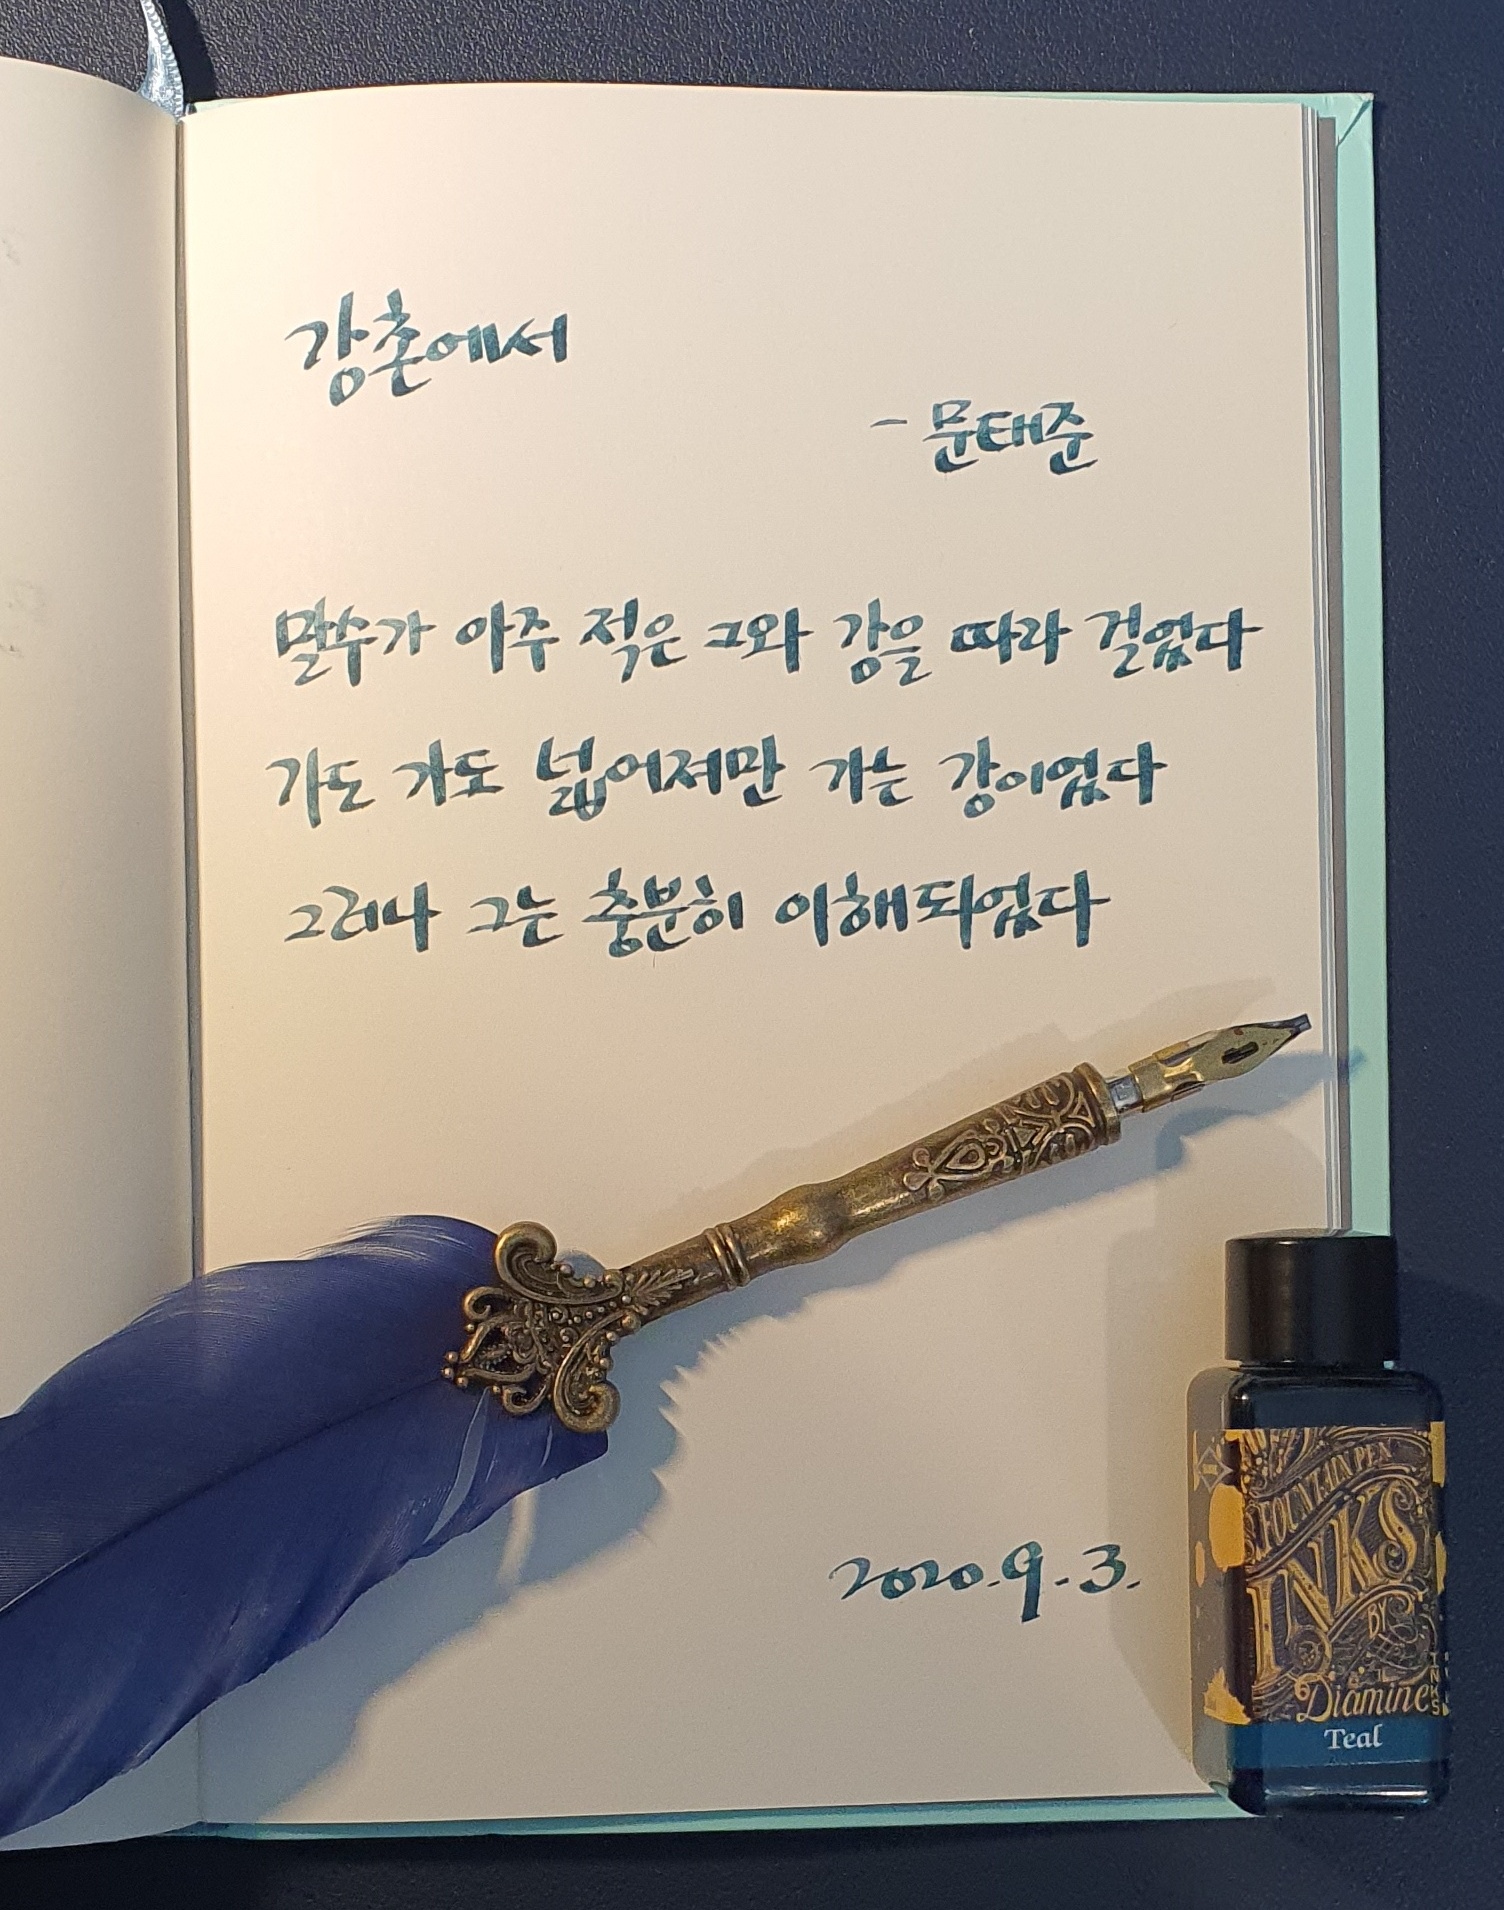 강촌에서
- 문태준
말수가 아주 적은 그와 강을 따라 걸었다
가도 가도 넓어져만 가는 강이었다
그러나 그는 충분히 이해되었다
2020. 9. 3.
FOUNTAIN PEN
INKS
BY
Diamine
INKS
Teal